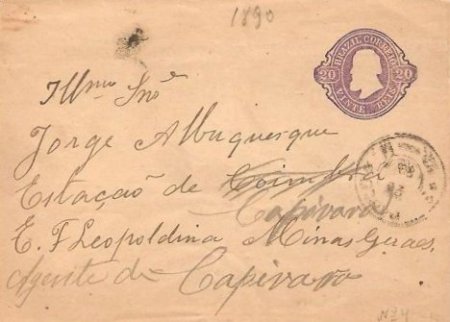 1890
BRAZIL CORREIO
20 20
VINTE REIS
Illmo Snr
Jorge Albuquerque
Estação de Coimbra
Capivara
E. F Leopoldina Minas Geraes.
Agente de Capivara